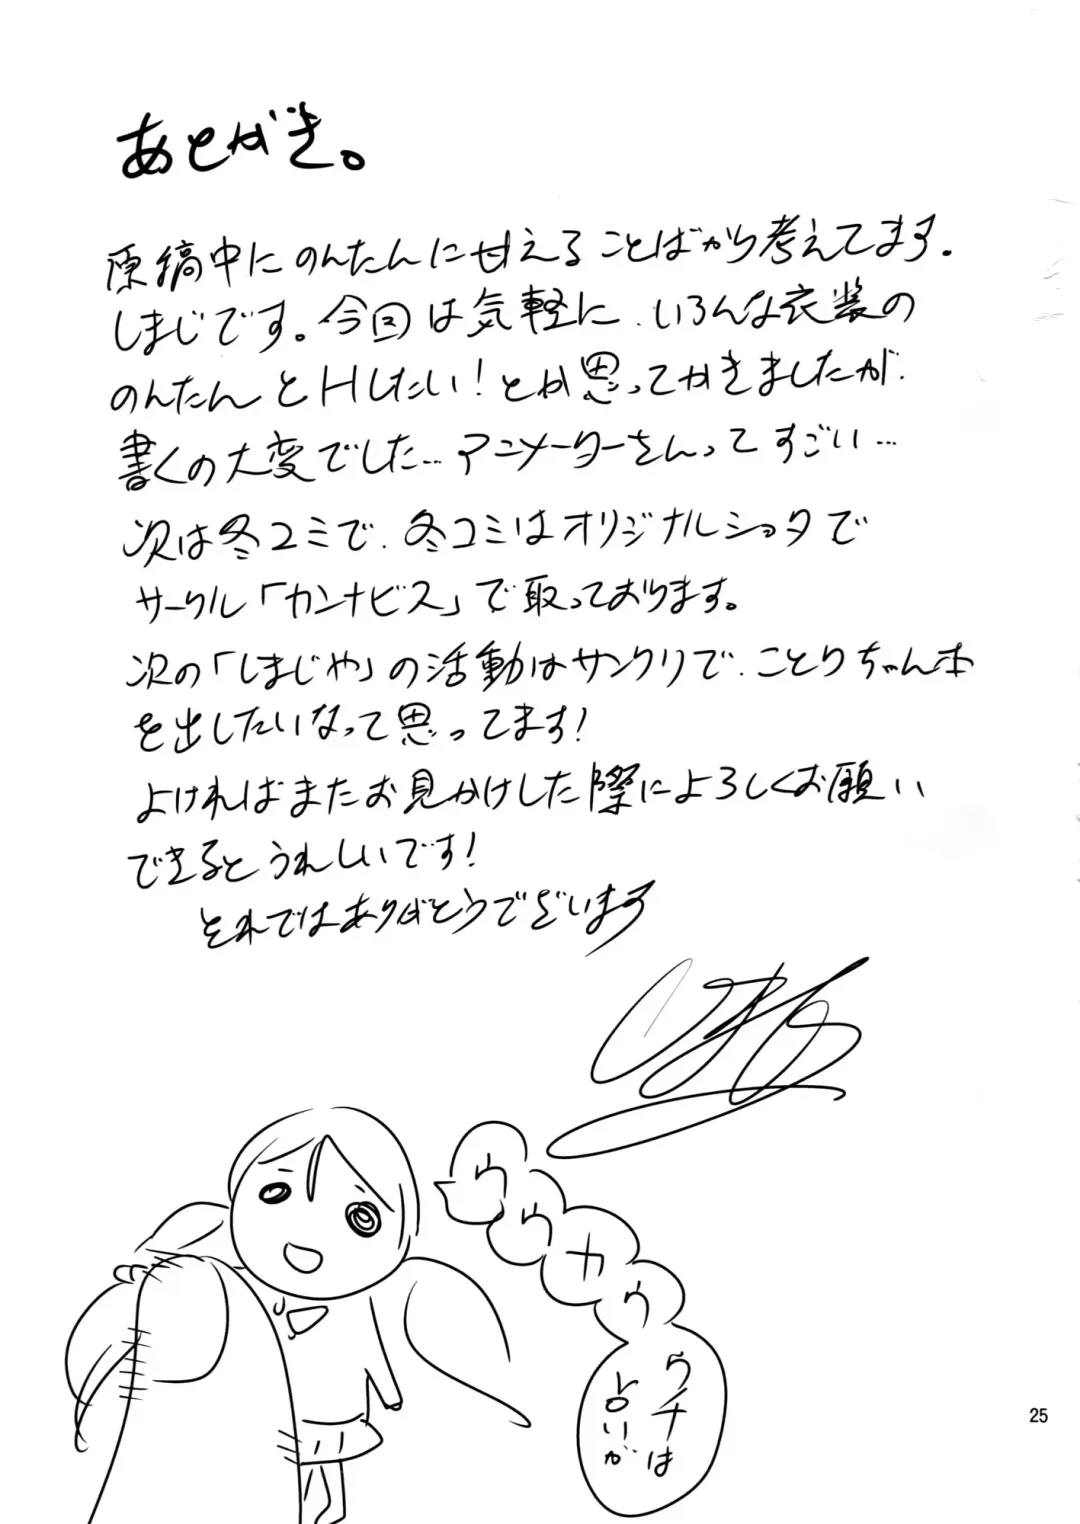 あとがき。
原稿中にのんたんに甘えることばかり考えてます。
しまじです。今回は気軽に、いろんな衣装の
のんたんとHしたい!とか思ってかきましたが、
書くの大変でした…アニメーターさんってすごい…
次は冬コミで、冬コミはオリジナルショタで
サークル「カンナビス」で取っております。
次の「しまじや」の活動はサンクリで、ことりちゃん本
を出したいなって思ってます!
よければまたお見かけした際によろしくお願い
できるとうれしいです!
それではありがとうございます
ウウウカウ
ウチは
占いが
25